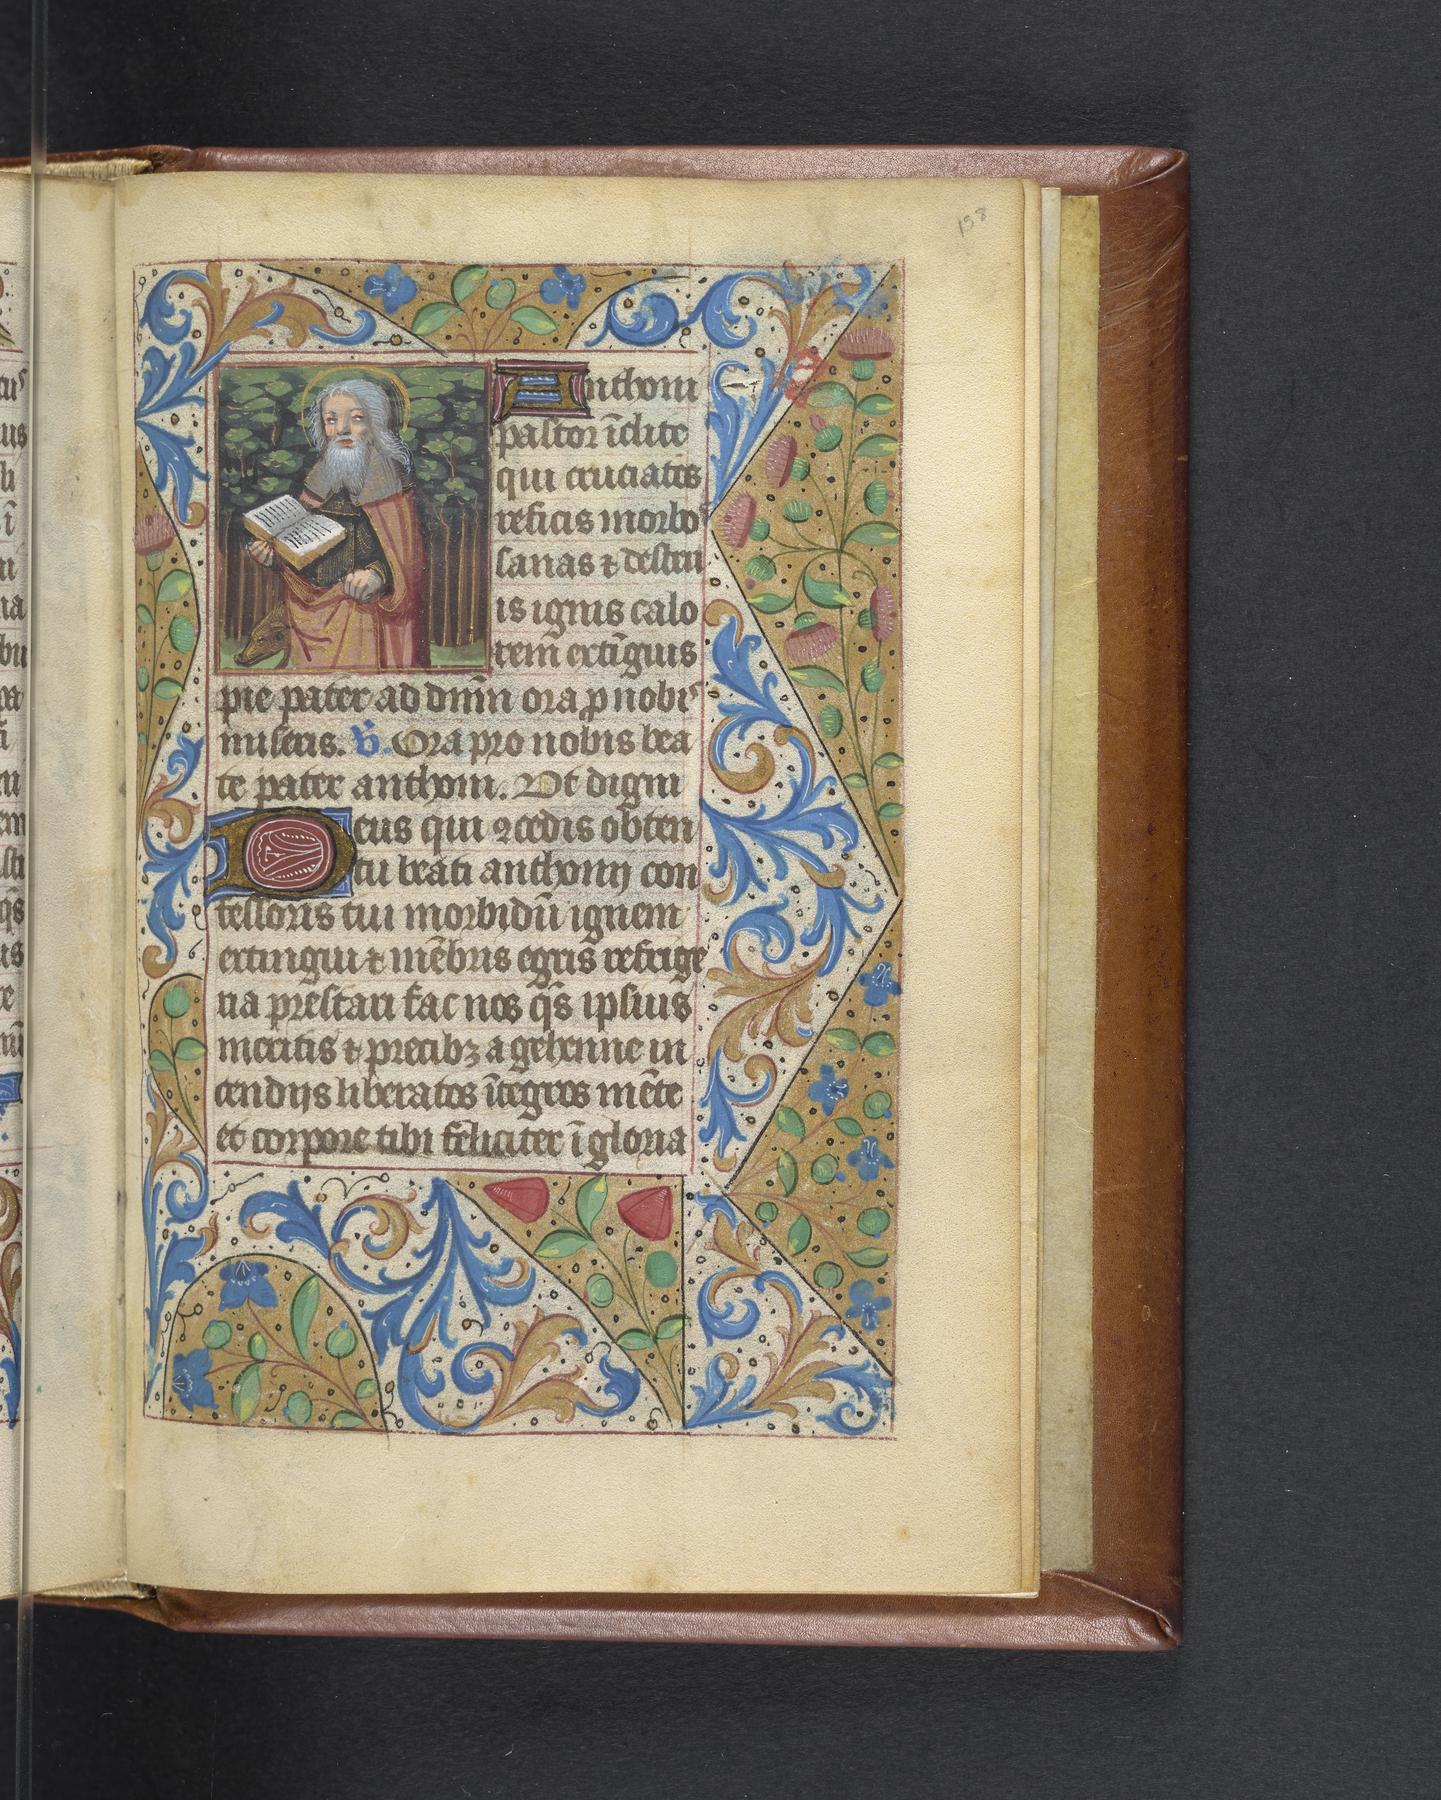 138
Anthoni
pastor īclite
qui cruciatos
reficis morbo⁹
sanas ⁊ destru
is ignis calo
rem̄ extīguis
pie pater ad dn̄m ora ꝓ nobi⁹
miseris. ℣. Ora pro nobis bea
te pater anthoni. Vt digni
Deus qui ꝯcedis obten
tu beati anthonij con
fessoris tui morbidū ignem
extingui ⁊ mēbris egris refrige
ria prestari fac nos q̄s ipsius
meritis ⁊ precibꝫ a gehenne in
cendijs liberatos ītegros mēte
et corpore tibi feliciter ī gloria